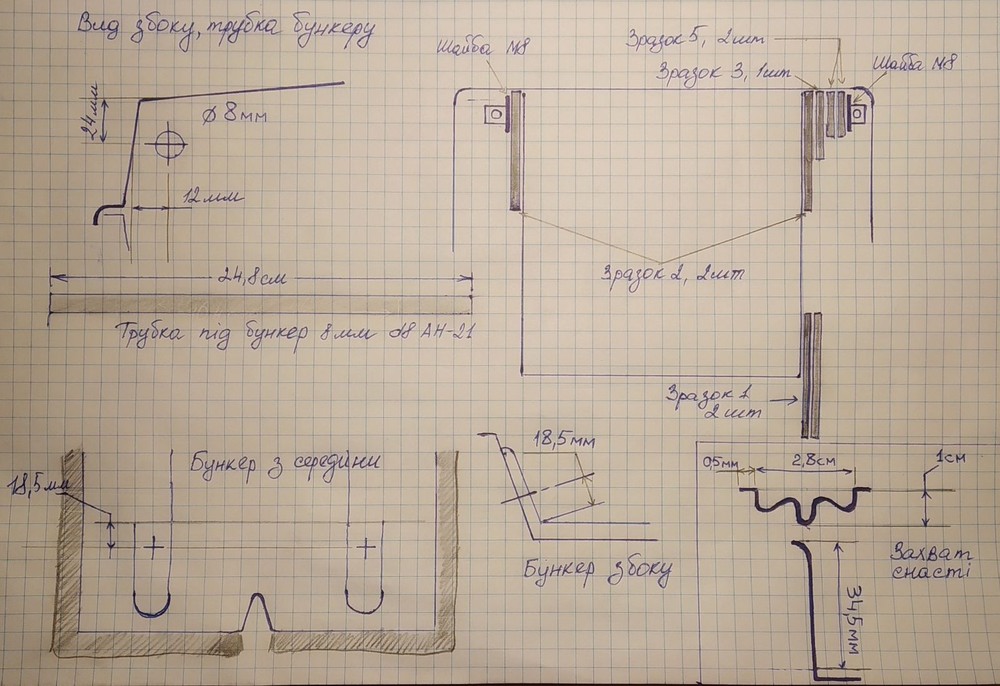 Вид збоку, трубка бункеру
Шайба М8
Зразок 5, 2шт
Зразок 3, 1шт
Шайба М8
24мм
⌀ 8мм
12мм
24,8см
Трубка під бункер 8мм d8 АН-21
Зразок 2, 2шт
Зразок 1
2шт
18,5мм
Бункер з середини
18,5мм
Бункер збоку
0,5мм
2,8см
1см
Захват
снасті
34,5мм